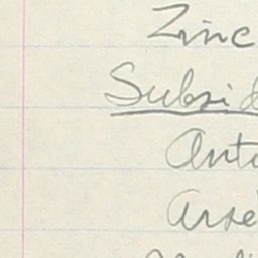 Zinc
Subsid
Anti
Arse